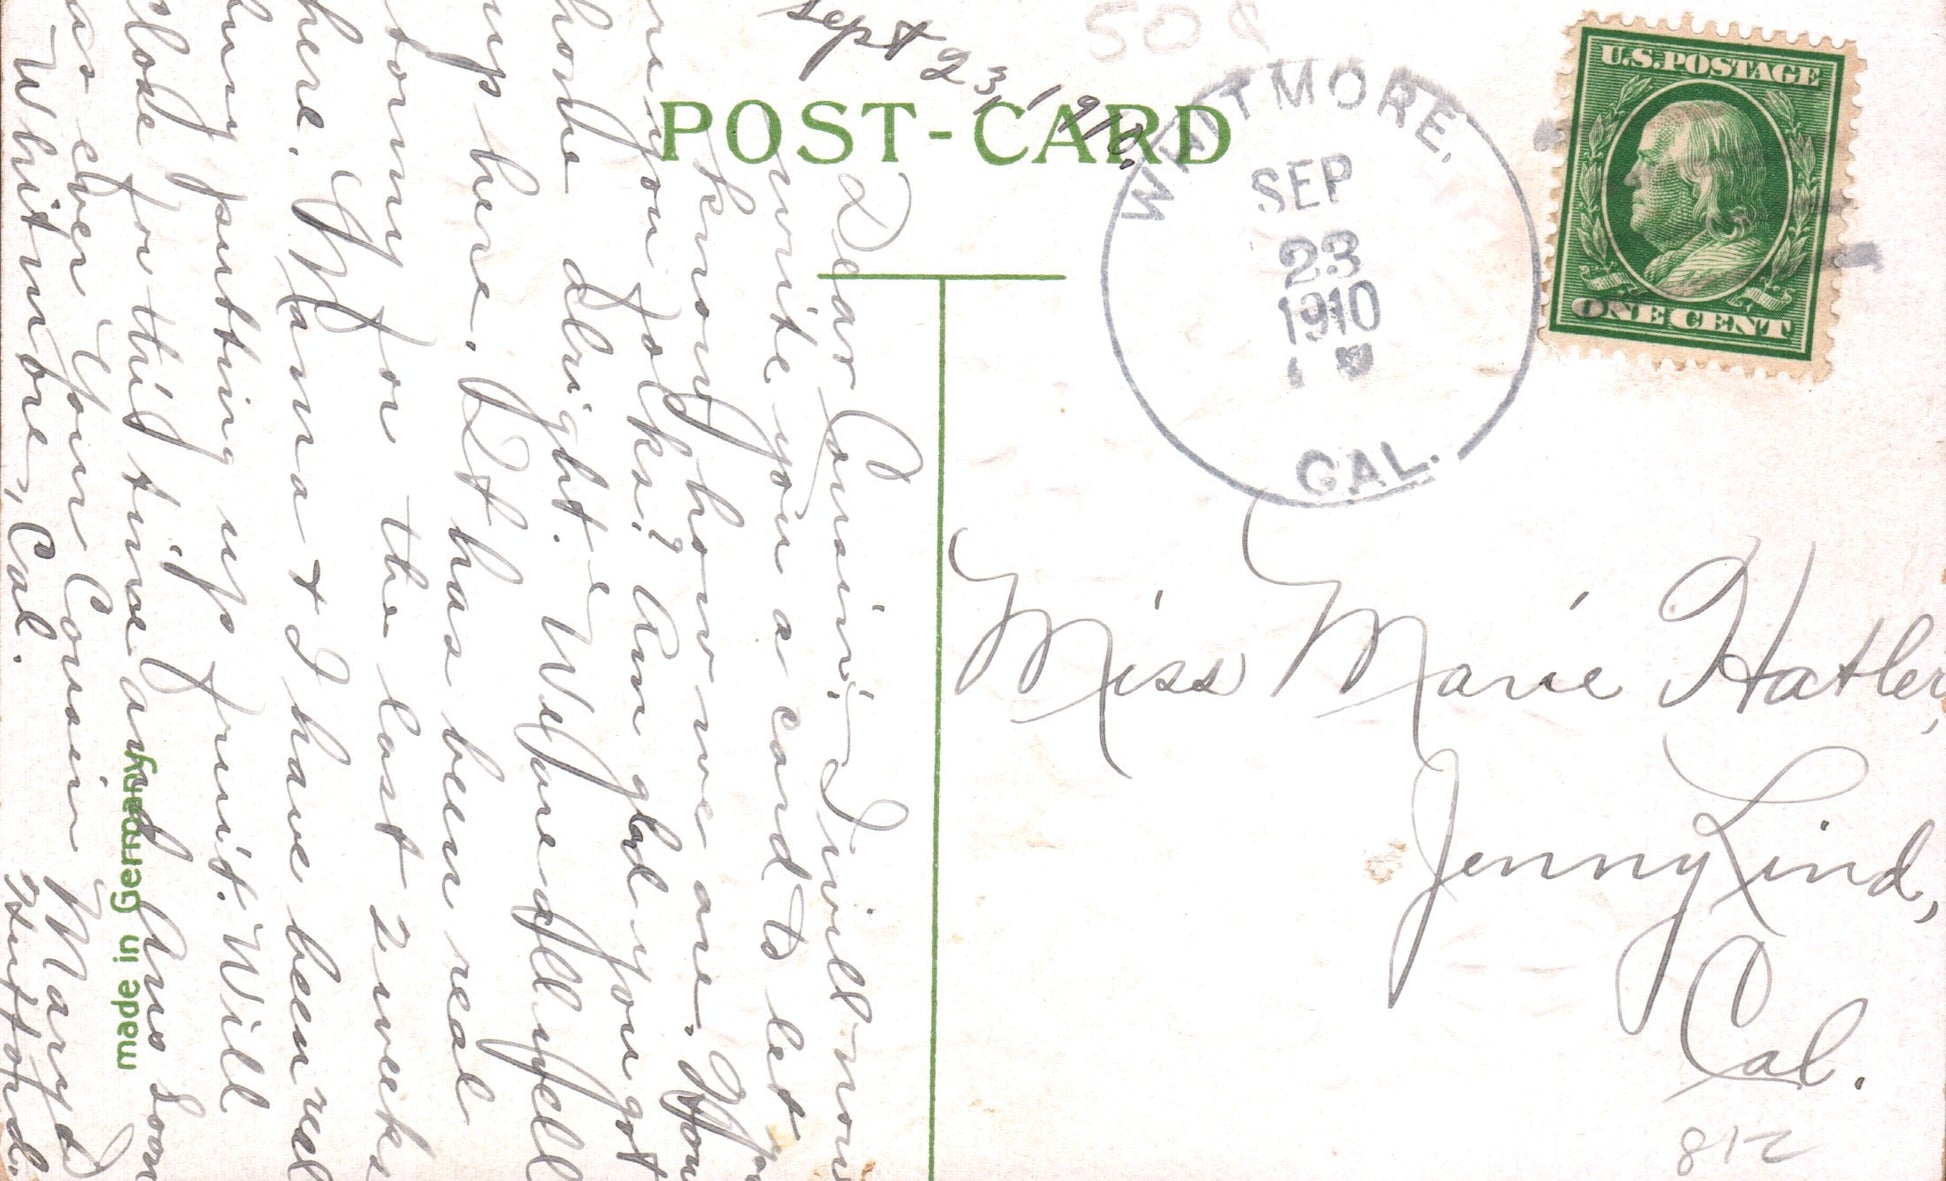 Sept 23, 1910.
POST-CARD
WHITMORE,
SEP
23
1910
CAL.
U.S. POSTAGE
ONE CENT
508
Dear Cousin; I will now
write you a card to let you
know how we are. How
are you folks? Am glad you got
home alright. We are all well
up here. It has been real
stormy for the last 2 weeks
here. Mama + I have been real
busy putting up fruit. Will
close for this time and ans soon
as ever Your Cousin Mary D
Whitmore, Cal.
made in Germany
Miss Marie Hatler,
Jenny Lind,
Cal.
812